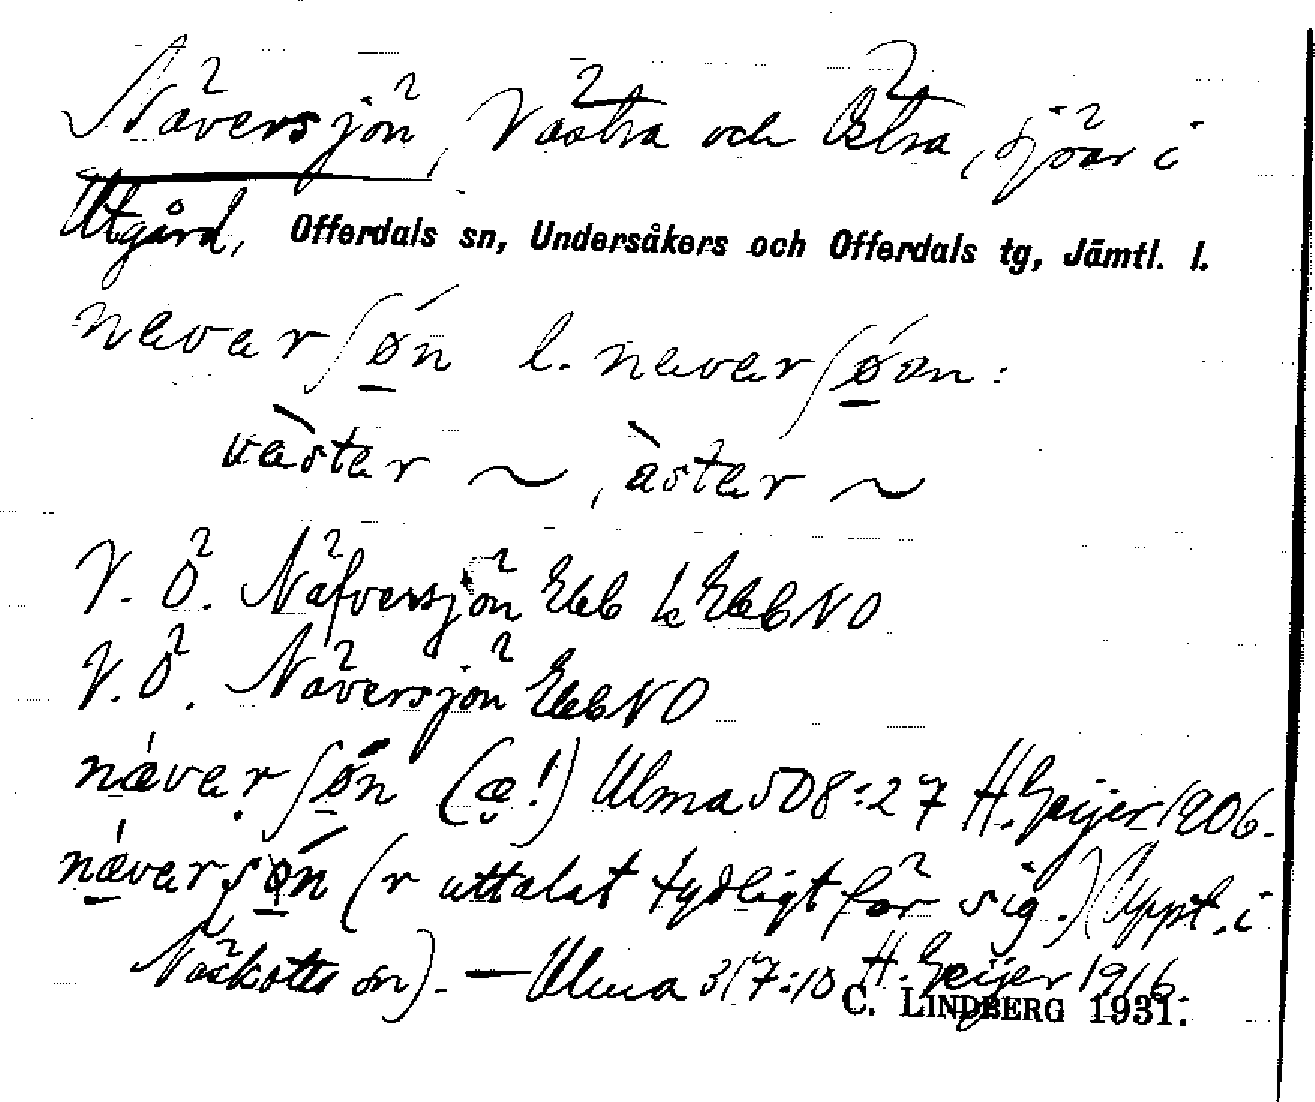 Näversjön, Västra och Östra, sjöar i
Utgård, Offerdals sn, Undersåkers och Offerdals tg, Jämtl. l.
nævarʃøń l. nævarʃǿən:
væ̀stər ~, æ̀stər ~
V. Ö. Näfversjön
V. Ö. Näversjön
nǽvarʃøń (æ!) Ulma 508:27 H. Geijer 1906.
nǽvarʃøń (r uttalat tydligt för sig.) (Uppt. i
Näskotts sn). — Ulma 317:10 H. Geijer 1916.
C. LINDBERG 1931.